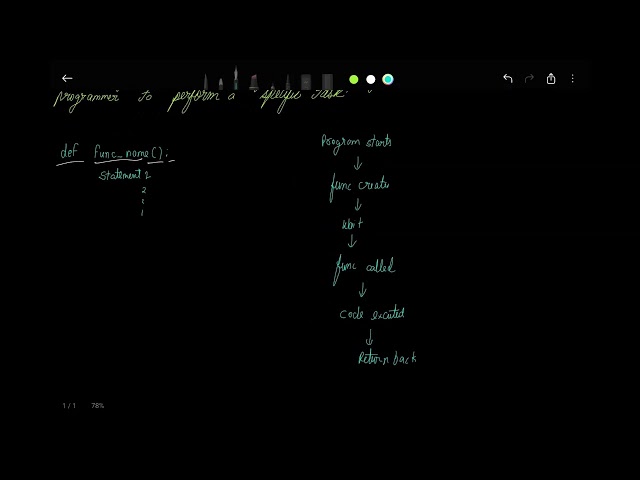 programmer to perform a "specific task."
def func_name():
statement 1
2
Program starts
↓
func create
↓
wait
↓
func called
↓
code excuted
↓
Return back
1 / 1 78%